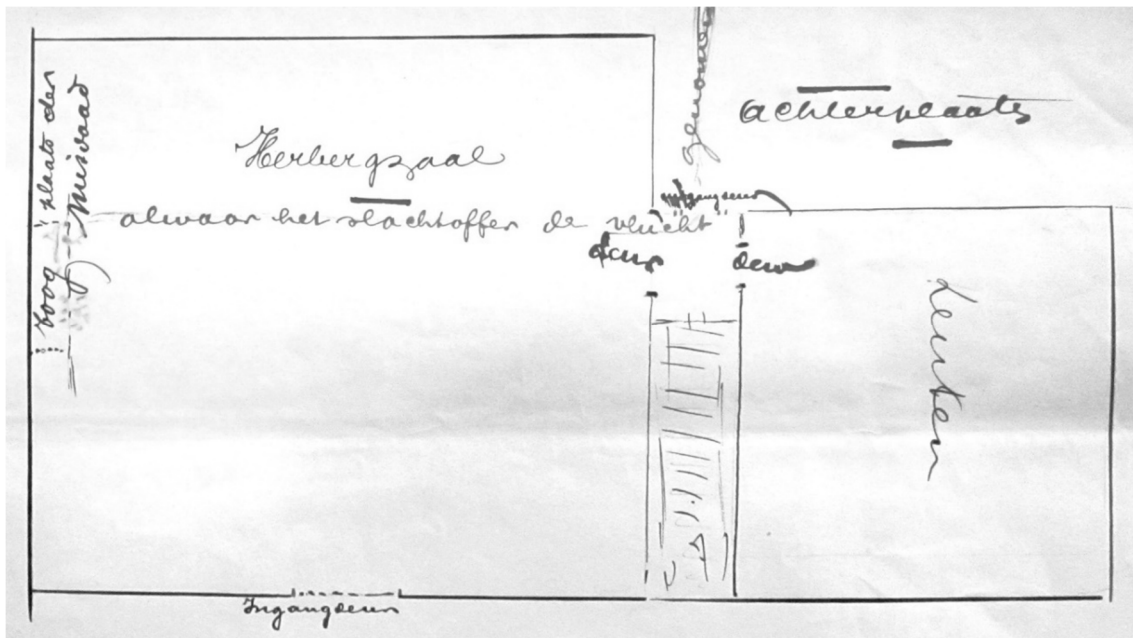 plaats der
misdaad
Toog
Herbergzaal
alwaar het slachtoffer de vlucht
genomen
achterplaats
uitgangdeur
deur
deur
Keuken
Ingangdeur